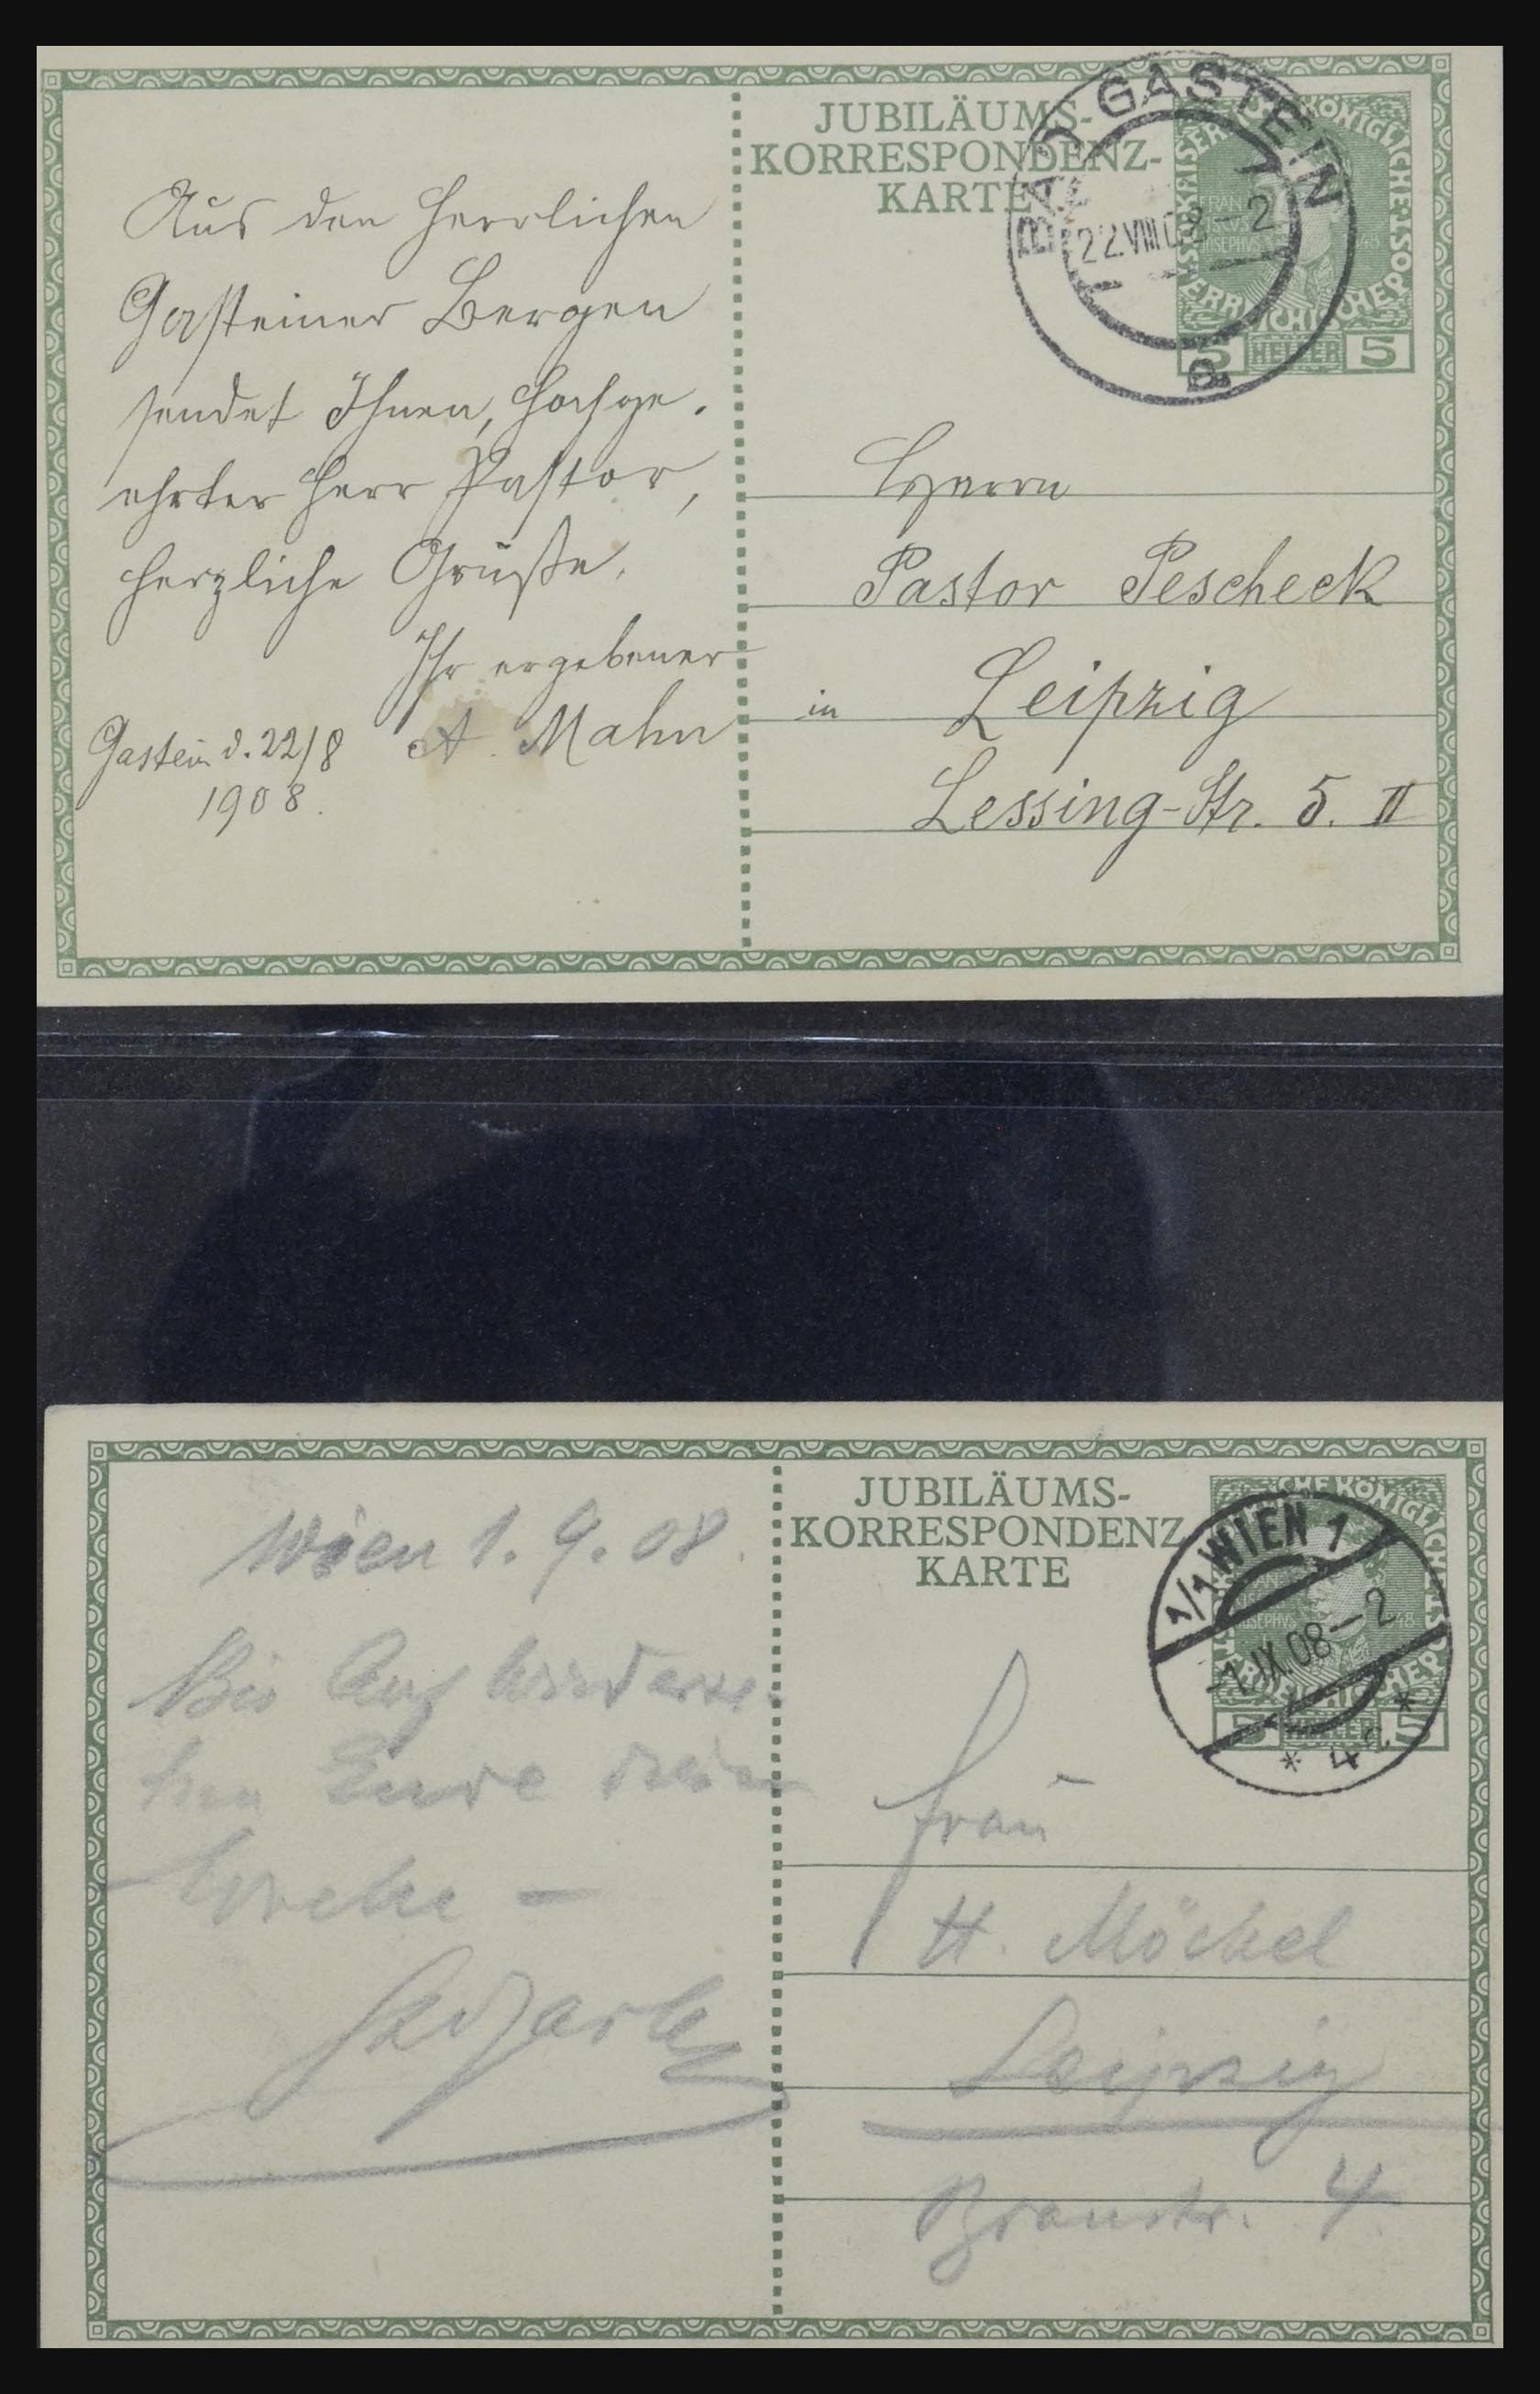 Aus den herrlichen
Gasteiner Bergen
sendet Ihnen, hochge-
ehrter Herr Pastor,
herzliche Grüße.
Ihr ergebener
A. Mahn
Gastein d. 22/8
1908.
JUBILÄUMS-
KORRESPONDENZ-
KARTE
BAD GASTEIN
22.VIII.08-2
a
5 HELLER 5
Herrn
Pastor Pescheck
in Leipzig
Lessing-Str. 5. II
Wien 1. 9. 08.
Bis Auf Wiederse-
hen Ende
Woche –
JUBILÄUMS-
KORRESPONDENZ
KARTE
1/1 WIEN 1
1.IX.08-2
* 4c *
Frau
H. Möckel
Leipzig
4